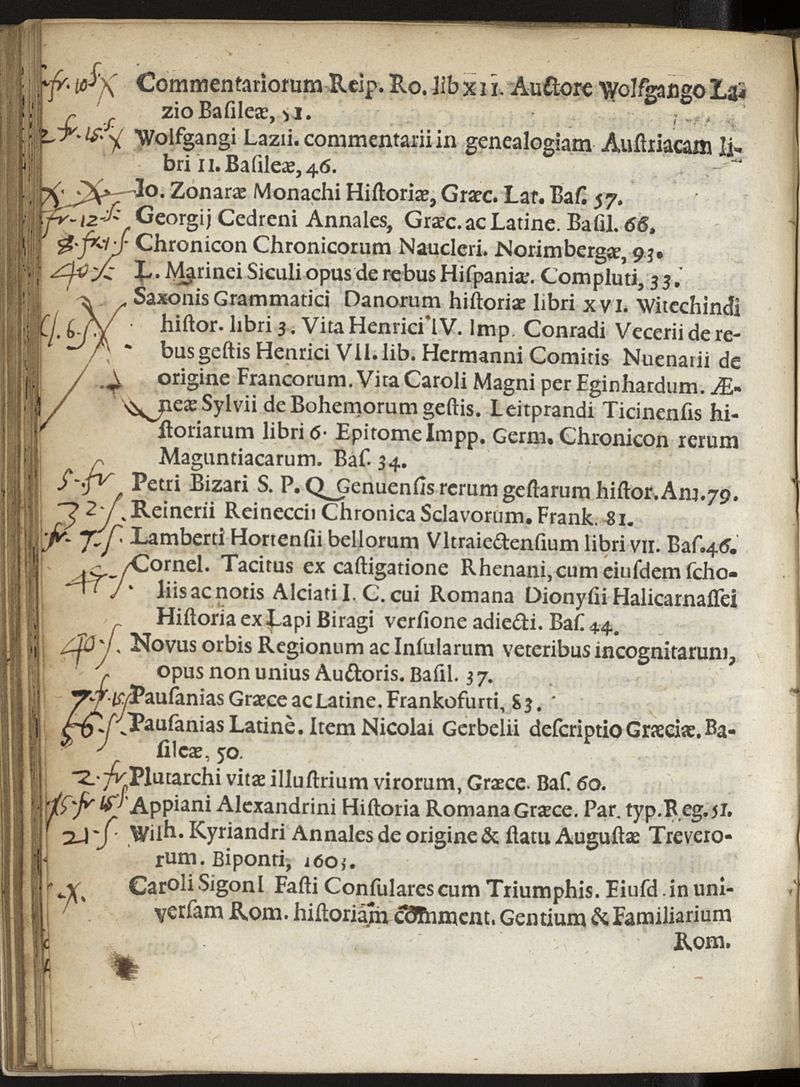 Commentariorum Reip. Ro. lib xii. Auctore Wolfgango La-
zio Basileæ, 51.
Wolfgangi Lazii. commentarii in genealogiam Austriacam li-
bri II. Basileæ, 46.
Io. Zonaræ Monachi Historiæ, Græc. Lat. Bas. 57.
fr-12-s Georgij Cedreni Annales, Græc. ac Latine. Basil. 66.
Chronicon Chronicorum Naucleri. Norimbergæ, 93.
40-s L. Marinei Siculi opus de rebus Hispaniæ. Compluti, 33.
Saxonis Grammatici Danorum historiæ libri XVI. Witechindi
histor. libri 3. Vita Henrici IV. Imp. Conradi Vecerii de re-
bus gestis Henrici VII. lib. Hermanni Comitis Nuenarii de
origine Francorum. Vita Caroli Magni per Eginhardum. Æ-
neæ Sylvii de Bohemorum gestis. Leitprandi Ticinensis hi-
storiarum libri 6. Epitome Impp. Germ. Chronicon rerum
Maguntiacarum. Bas. 34.
5-fr Petri Bizari S. P. Q Genuensis rerum gestarum histor. Ant. 79.
32-s. Reinerii Reineccii Chronica Sclavorum. Frank. 81.
fr-7-s. Lamberti Hortensii bellorum Vltraiectensium libri VII. Bas. 46.
47-s. Cornel. Tacitus ex castigatione Rhenani, cum eiusdem scho-
liis ac notis Alciati I. C. cui Romana Dionysii Halicarnassei
Historia ex Lapi Biragi versione adiecti. Bas. 44.
40-s. Novus orbis Regionum ac Insularum veteribus incognitarum,
opus non unius Auctoris. Basil. 37.
7-fr-15s Pausanias Græce ac Latine. Frankofurti, 83.
56-s. Pausanias Latinè. Item Nicolai Gerbelii descriptio Græciæ. Ba-
sileæ, 50.
2-fr Plutarchi vitæ illustrium virorum, Græce. Bas. 60.
15-fr 15s Appiani Alexandrini Historia Romana Græce. Par. typ. Reg. 51.
21-s. Wilh. Kyriandri Annales de origine & statu Augustæ Trevero-
rum. Biponti, 1603.
-X. Caroli SigonI Fasti Consulares cum Triumphis. Eiusd. in uni-
versam Rom. historiam comment. Gentium & Familiarium
Rom.